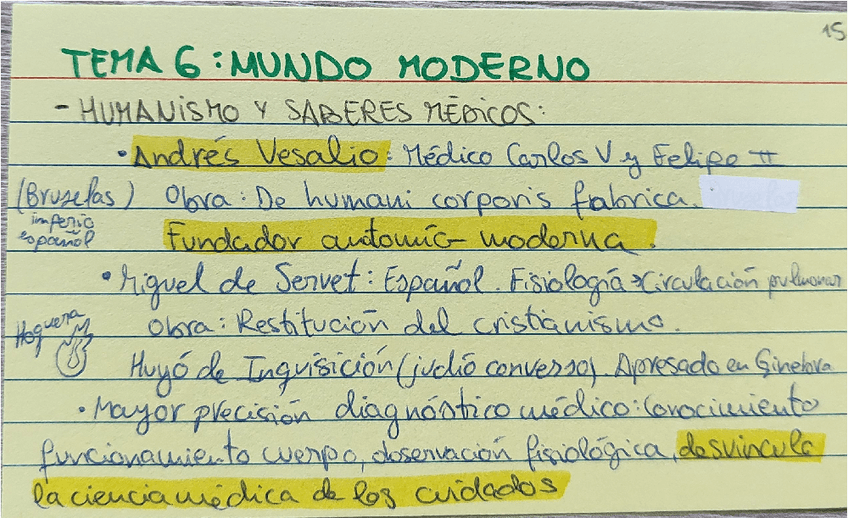 15
TEMA 6: MUNDO MODERNO
- HUMANISMO Y SABERES MÉDICOS:
• Andrés Vesalio: Médico Carlos V y Felipe II
(Bruselas) Obra: De humani corporis fabrica.
imperio
español
Fundador anatomía moderna.
• Miguel de Servet: Español. Fisiología → Circulación pulmonar
Obra: Restitución del cristianismo.
Hoguera
Huyó de Inquisición (judío converso). Apresado en Ginebra
• Mayor precisión diagnóstico médico: Conocimiento
funcionamiento cuerpo, observación fisiológica, desvincula
la ciencia médica de los cuidados